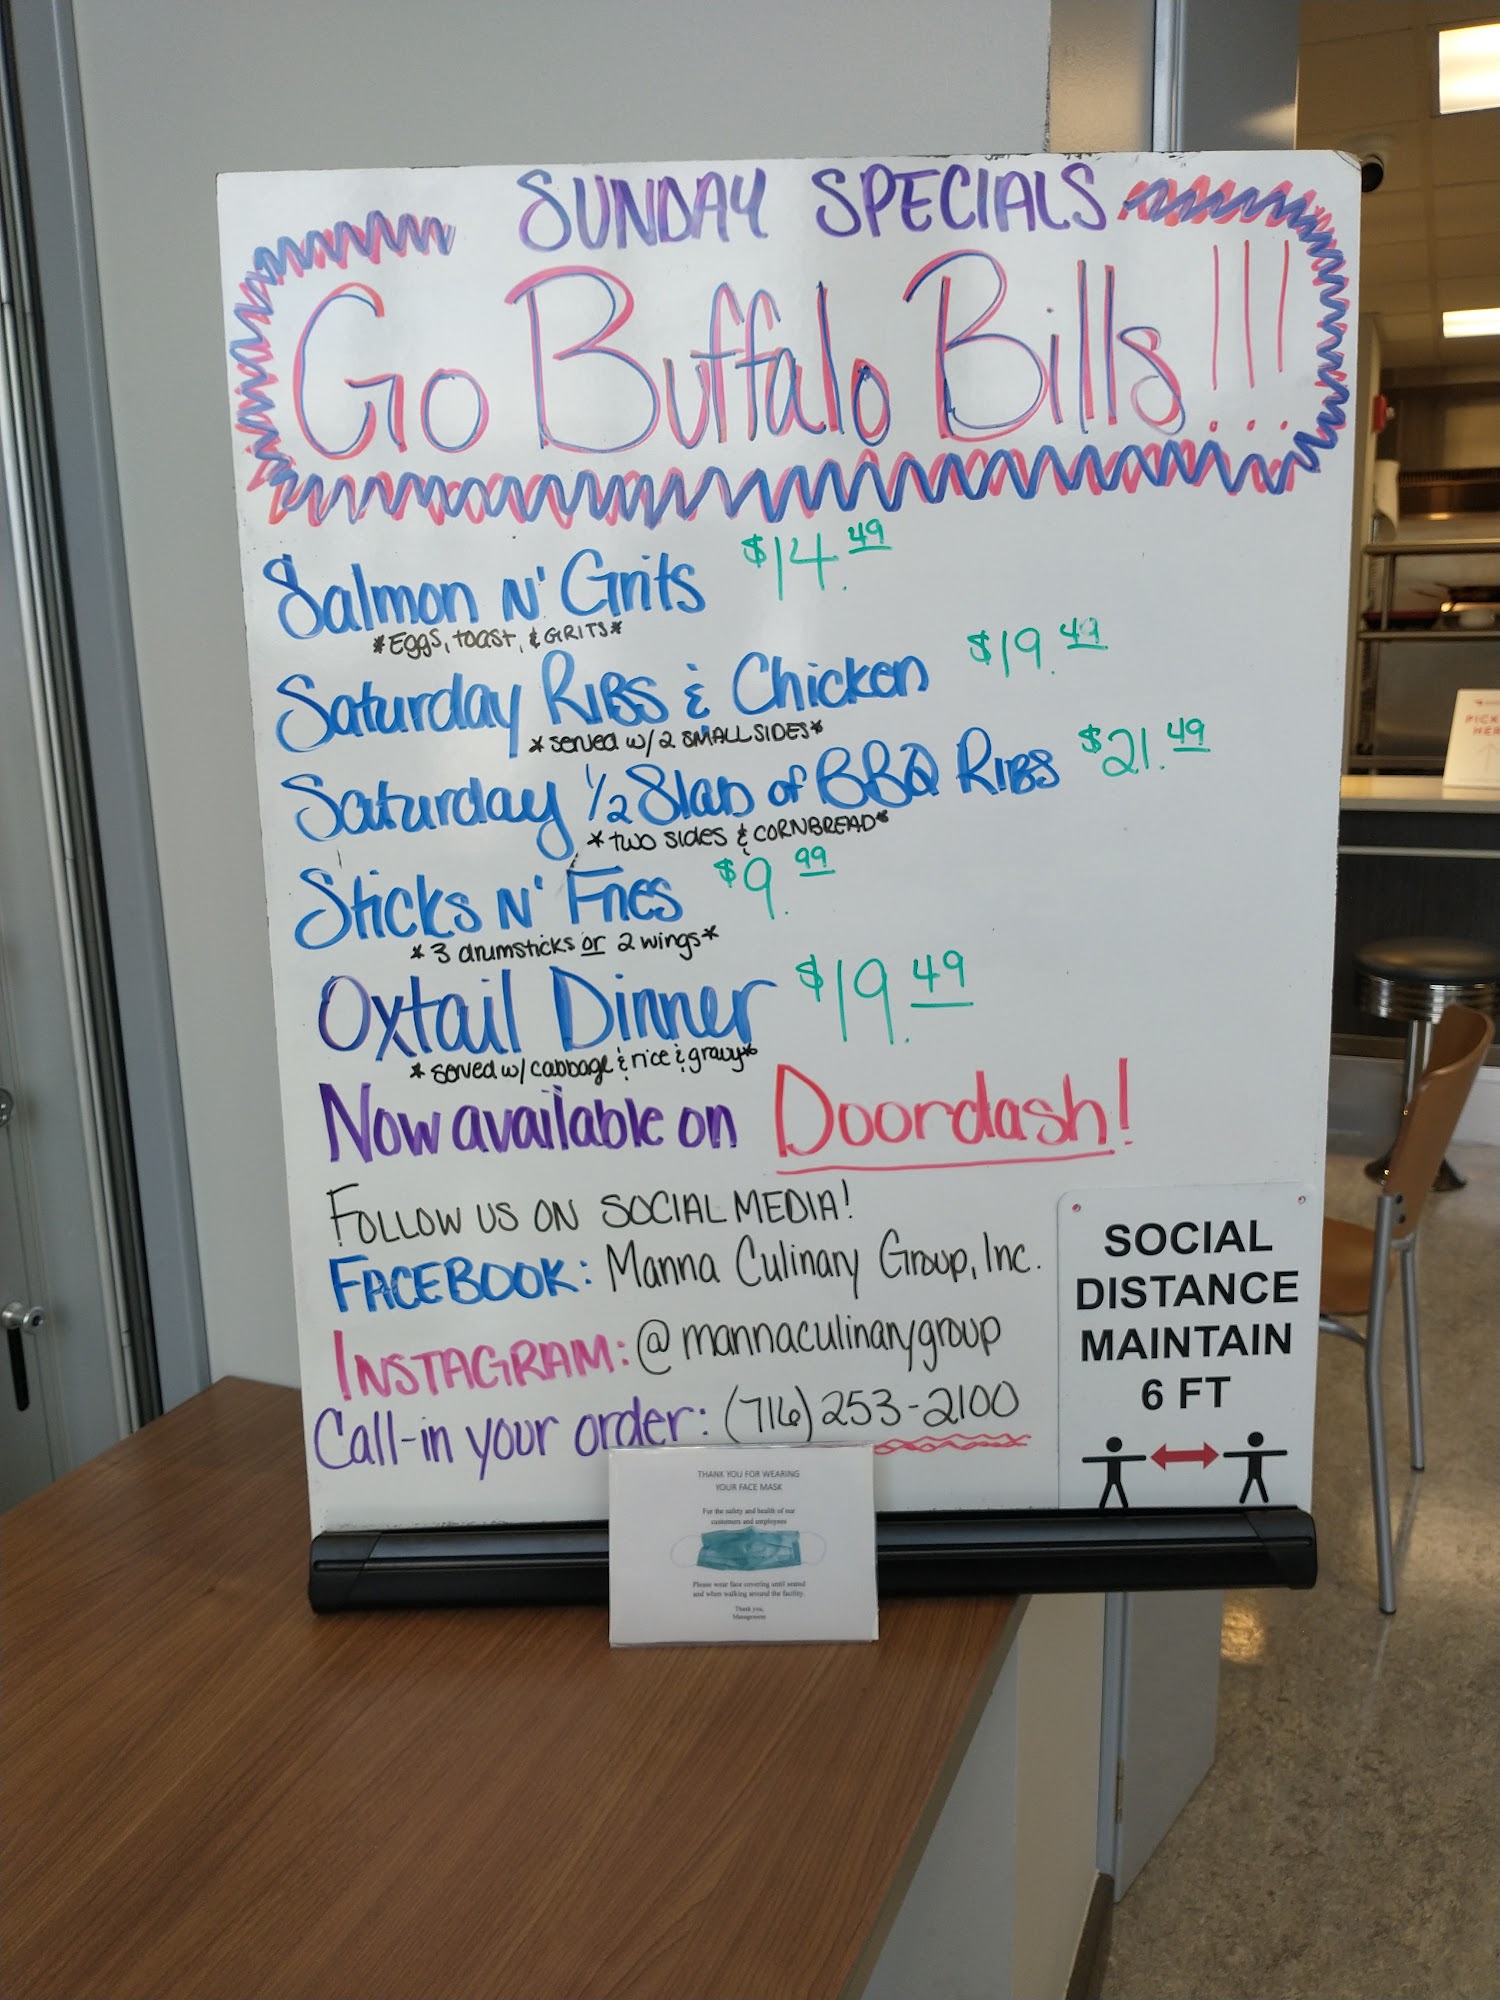 SUNDAY SPECIALS
Go Buffalo Bills!!!
Salmon N' Grits $14.49
*Eggs, toast, & GRITS*
Saturday RIBS & Chicken $19.49
*served w/ 2 SMALL SIDES*
Saturday 1/2 Slab of BBQ RIBS $21.49
*two sides & CORNBREAD*
Sticks N' Fries $9.99
*3 drumsticks or 2 wings*
Oxtail Dinner $19.49
*served w/ cabbage & rice & gravy*
Now available on Doordash!
FOLLOW US ON SOCIAL MEDIA!
FACEBOOK: Manna Culinary Group, Inc.
INSTAGRAM: @mannaculinarygroup
Call-in your order: (716) 253-2100
SOCIAL
DISTANCE
MAINTAIN
6 FT
THANK YOU FOR WEARING
YOUR FACE MASK
For the safety and health of our
customers and employees
Please wear face covering until seated
and when walking around the facility.
Thank you,
Management